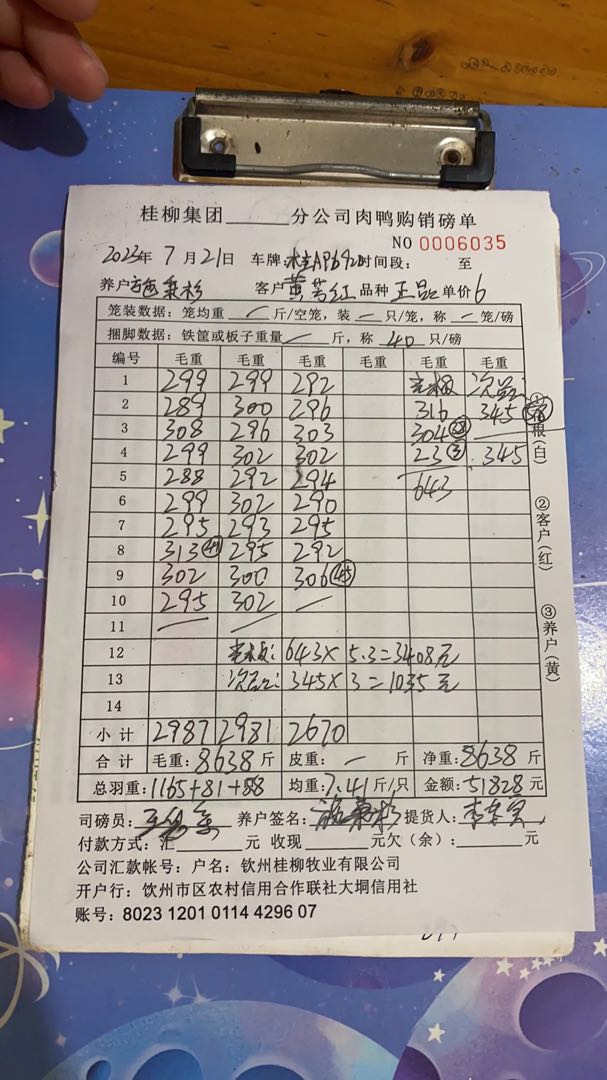 桂柳集团______分公司肉鸭购销磅单
NO 0006035
2023年 7 月 21日 车牌 时间段: 至
养户 客户 品种 正品 单价 6
笼装数据：笼均重 — 斤/空笼，装 — 只/笼，称 — 笼/磅
捆脚数据：铁筐或板子重量 — 斤，称 40 只/磅
编号 毛重 毛重 毛重 毛重 毛重 毛重
1 299 299 292 次品:
2 289 300 296 316 345
3 308 296 303 304
4 299 302 302 23 ③ 345
5 288 292 294 643
6 299 302 290
7 295 293 295
8 313 295 292
9 302 300 306 45
10 295 302 —
11 — —
12 643× 5.3=3408元
13 次品: 345×3=1035元
14
小计 2987 2981 2670
合计 毛重: 8638 斤 皮重: — 斤 净重: 8638 斤
总羽重: 1165+81+88 均重: 7.41 斤/只 金额: 51828 元
司磅员: 养户签名: 提货人:
付款方式: 汇______元 收现______元欠（余）:______元
公司汇款帐号：户名：钦州桂柳牧业有限公司
开户行：钦州市区农村信用合作联社大垌信用社
账号：8023 1201 0114 4296 07
①
根(白)
②客户(红)
③养户(黄)